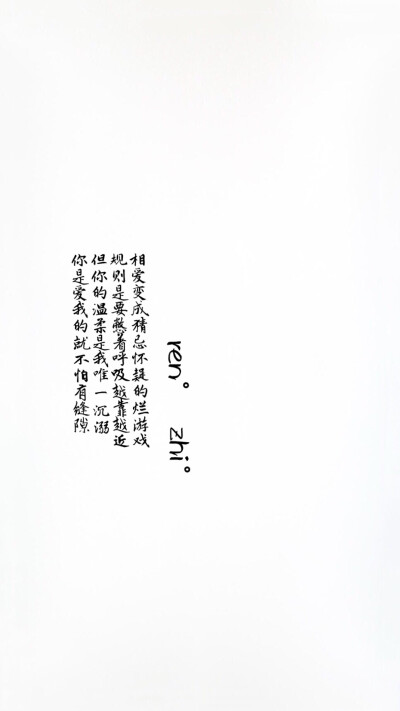 ren°
zhi°
相爱变成猜忌怀疑的烂游戏
规则是要憋着呼吸越靠越近
但你的温柔是我唯一沉溺
你是爱我的就不怕有缝隙